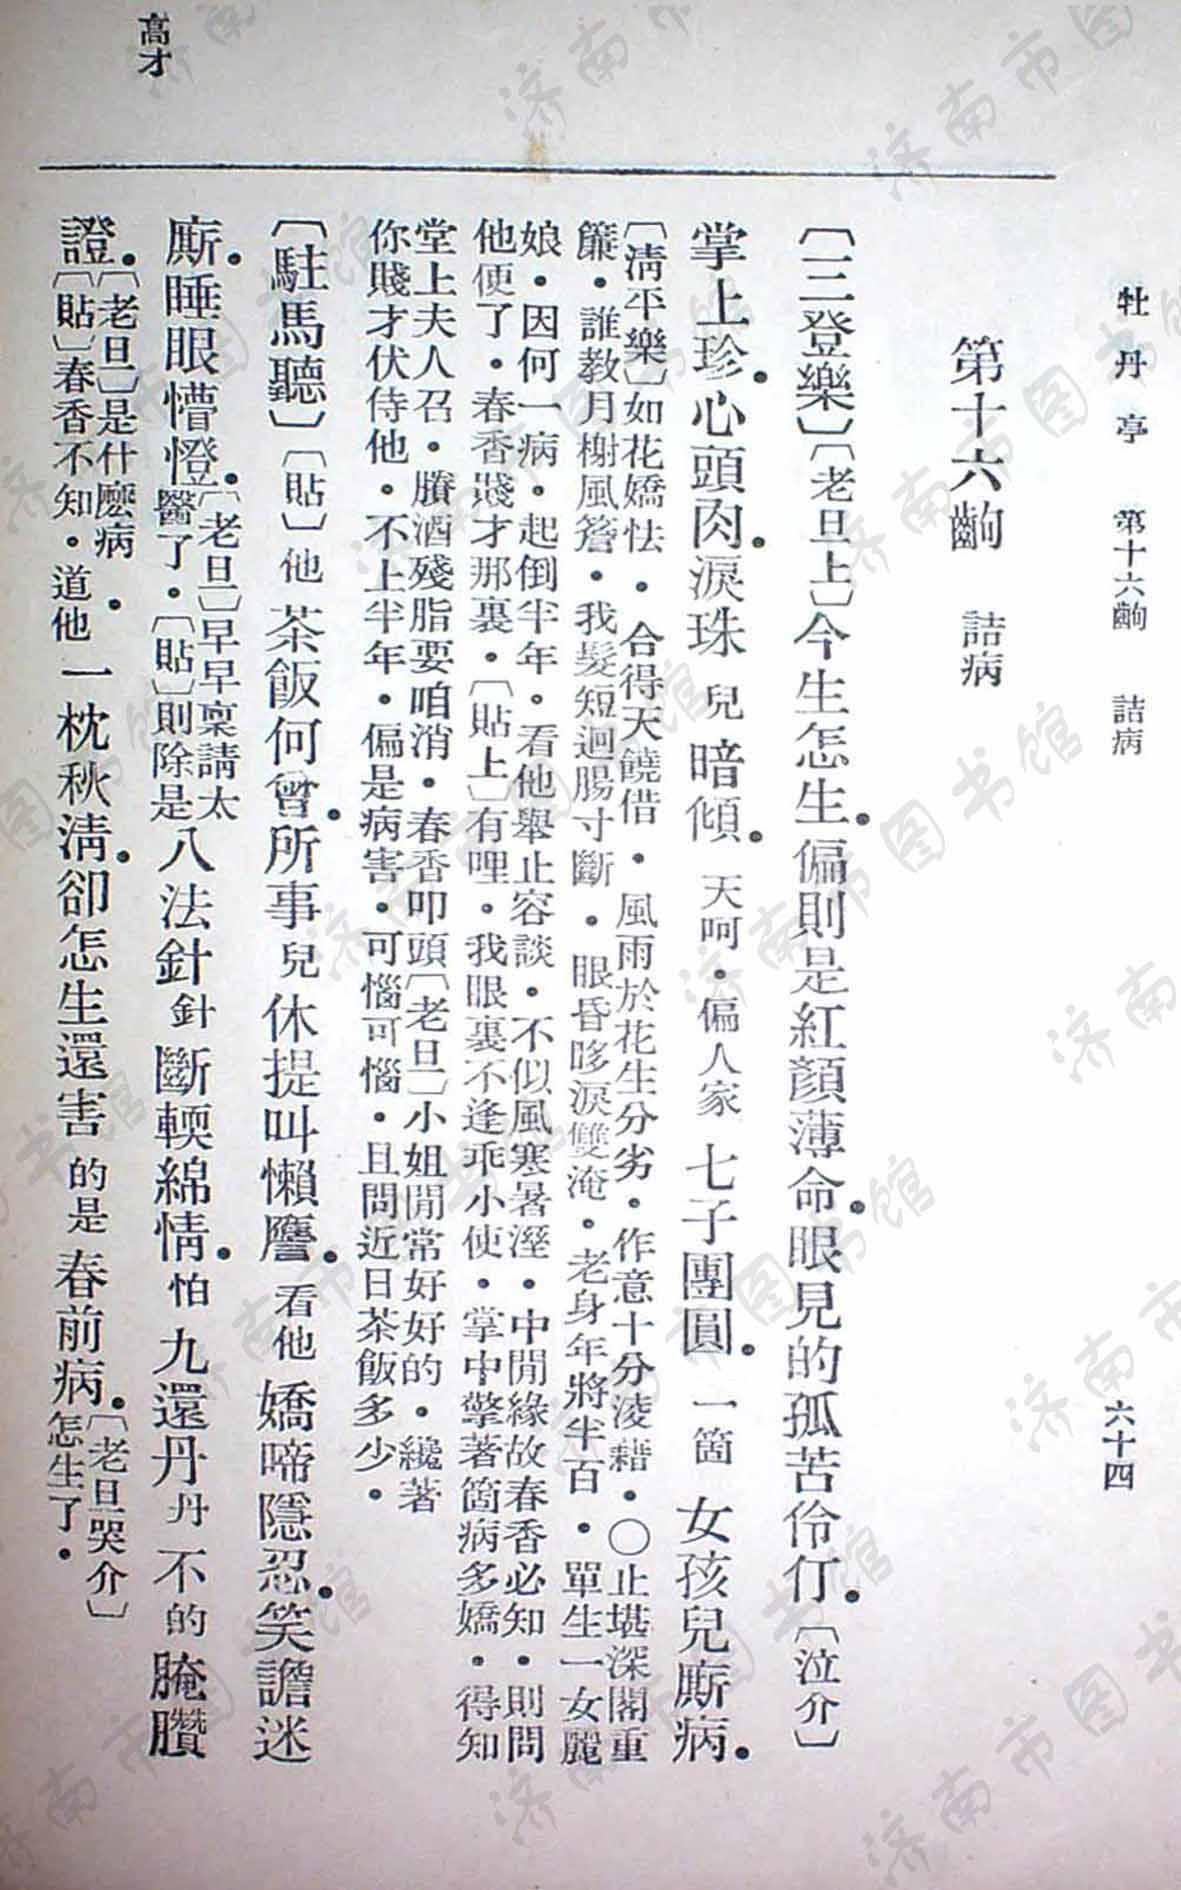 牡丹亭　第十六齣　詰病　六十四
第十六齣　詰病
〔三登樂〕〔老旦上〕今生怎生。偏則是紅顏薄命。眼見的孤苦伶仃。〔泣介〕
掌上珍。心頭肉。淚珠兒暗傾。天呵。偏人家七子團圓。一箇女孩兒廝病。
〔清平樂〕如花嬌怯。合得天饒借。風雨於花生分劣。作意十分凌藉。〇止堪深閣重
簾。誰教月榭風簷。我髮短迴腸寸斷。眼昏眵淚雙淹。老身年將半百。單生一女麗
娘。因何一病。起倒半年。看他舉止容談。不似風寒暑溼。中閒緣故春香必知。則問
他便了。春香賤才那裏。〔貼上〕有哩。我眼裏不逢乖小使。掌中擎著箇病多嬌。得知
堂上夫人召。賸酒殘脂要咱消。春香叩頭〔老旦〕小姐閒常好好的。纔著
你賤才伏侍他。不上半年。偏是病害。可惱可惱。且問近日茶飯多少。
〔駐馬聽〕〔貼〕他茶飯何曾。所事兒休提叫懶譍。看他嬌啼隱忍。笑譫迷
廝。睡眼懵憕。〔老旦〕早早稟請太醫了。〔貼〕則除是八法針針斷輭綿情。怕九還丹丹不的腌臢
證。〔老旦〕是什麼病。〔貼〕春香不知。道他一枕秋清。卻怎生還害的是春前病。〔老旦哭介〕怎生了。
高才
济南市图书馆